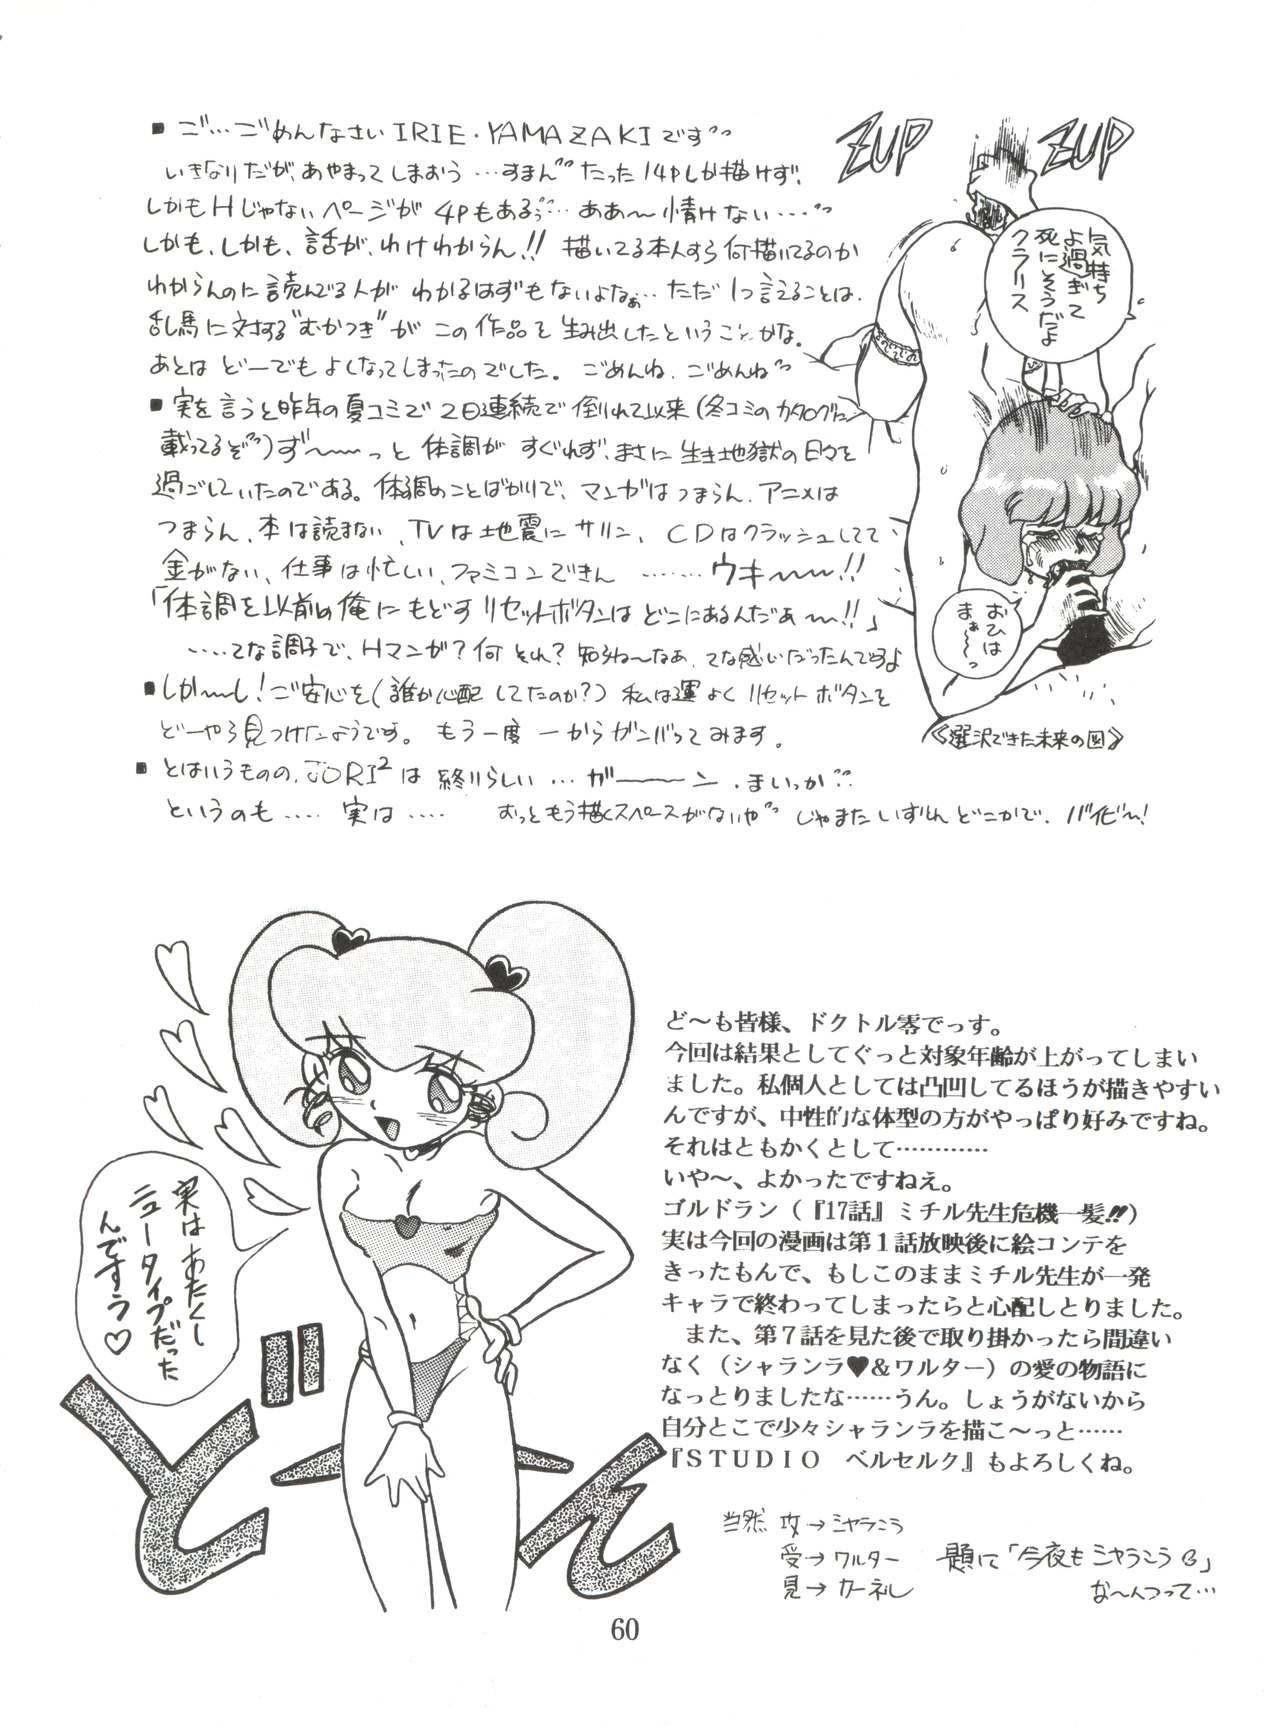 ■ ゴ…ごめんなさいIRIE・YAMAZAKIです
いきなりだが、あやまってしまおう…すまん たった14Pしか描けず、
しかもHじゃないページが4Pもあるぅ…ああ〜情けない…
しかも、しかも、話が、わけわからん!! 描いてる本人すら何描いてるのか
わからんのに読んでる人がわかるはずもないよなぁ…ただ1つ言えることは、
乱馬に対する“むかつき”がこの作品を生み出したということかな。
あとはどーでもよくなってしまったのでした。ごめんね、ごめんね
■ 実を言うと昨年の夏コミで2日連続で倒れて以来(冬コミのカタログに
載ってるぞ)ず〜〜っと体調がすぐれず、まさに生き地獄の日々を
過ごしていたのである。体調のことばかりで、マンガはつまらん、アニメは
つまらん、本は読まない、TVは地震にサリン、CDはクラッシュしてて
金がない、仕事は忙しい、ファミコンできん……ウキ〜〜!!
「体調を以前の俺にもどすリセットボタンはどこにあるんだぁ〜!!」
……てな調子で、Hマンガ?何それ?知らね〜なぁ、てな感じだったんですよ
■ しか〜し!ご安心を(誰か心配してたのか?)私は運よくリセットボタンを
どーやら見つけたようです。もう一度一からガンバってみます。
■ とはいうものの、JORI²は終りらしい…ガーーン、まいっか
というのも……実は……おっともう描くスペースがないや じゃまたいずれどこかで、バイビ〜!
ZUP
ZUP
気持ち
よ過ぎて
死にそうだよ
クラリス
おひは
まぁ〜っ
《選択できた未来の図》
ど〜も皆様、ドクトル零でっす。
今回は結果としてぐっと対象年齢が上がってしまい
ました。私個人としては凸凹してるほうが描きやすい
んですが、中性的な体型の方がやっぱり好みですね。
それはともかくとして…………
いや〜、よかったですねえ。
ゴルドラン(『17話』ミチル先生危機一髪!!)
実は今回の漫画は第1話放映後に絵コンテを
きったもんで、もしこのままミチル先生が一発
キャラで終わってしまったらと心配しとりました。
また、第7話を見た後で取り掛かったら間違い
なく(シャランラ♥&ワルター)の愛の物語に
なっとりましたな……うん。しょうがないから
自分とこで少々シャランラを描こ〜っと……
『STUDIO ベルセルク』もよろしくね。
当然 攻→シャラこう
受→ワルター
見→カーネル
題して「今夜もシャラこう」
な〜んつって…
実はあたくし
ニュータイプだった
んですう♡
どーん
60